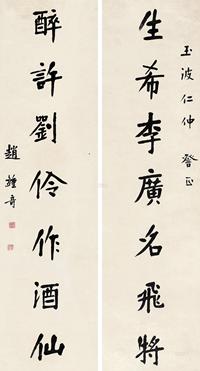 玉波仁仲 督正
生希李廣名飛將
醉許劉伶作酒仙
趙鍾奇